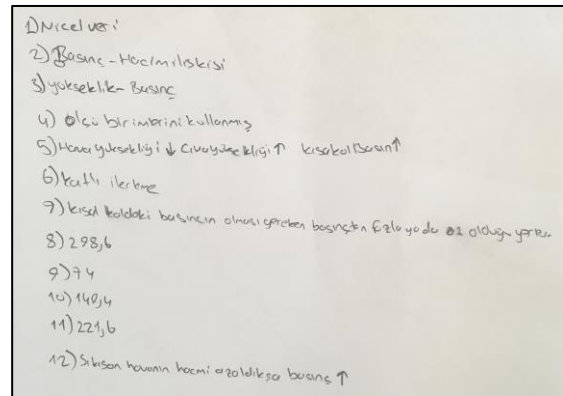 1) Nicel veri
2) Basınç - Hacim ilişkisi
3) yükseklik - Basınç
4) ölçü birimlerini kullanmış
5) Hava yüksekliği ↓ Cıva yüksekliği ↑ kısa kol Basın ↑
6) Katlı ilerleme
7) kısa koldaki basıncın olması gereken basınçtan fazla ya da az olduğu yerler.
8) 298,6
9) 74
10) 149,4
11) 221,6
12) Sıkışan havanın hacmi azaldıksa basınç ↑